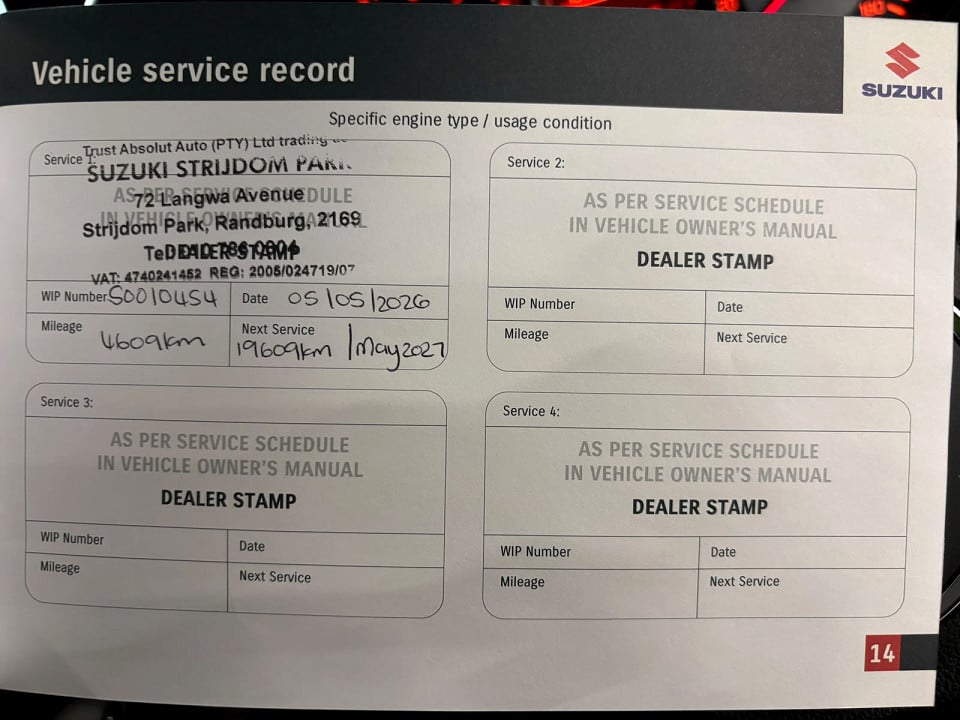 Vehicle service record
SUZUKI
Specific engine type / usage condition
Service 1:
Trust Absolut Auto (PTY) Ltd trading
SUZUKI STRIJDOM PARK
AS PER SERVICE SCHEDULE
72 Langwa Avenue
IN VEHICLE OWNER'S MANUAL
Strijdom Park, Randburg, 2169
DEALER STAMP
VAT: 4740241452 REG: 2005/024719/07
WIP Number S0010454
Date 05/05/2026
Mileage 4609km
Next Service
19609km / May2027
Service 2:
AS PER SERVICE SCHEDULE
IN VEHICLE OWNER'S MANUAL
DEALER STAMP
WIP Number
Date
Mileage
Next Service
Service 3:
AS PER SERVICE SCHEDULE
IN VEHICLE OWNER'S MANUAL
DEALER STAMP
WIP Number
Date
Mileage
Next Service
Service 4:
AS PER SERVICE SCHEDULE
IN VEHICLE OWNER'S MANUAL
DEALER STAMP
WIP Number
Date
Mileage
Next Service
14